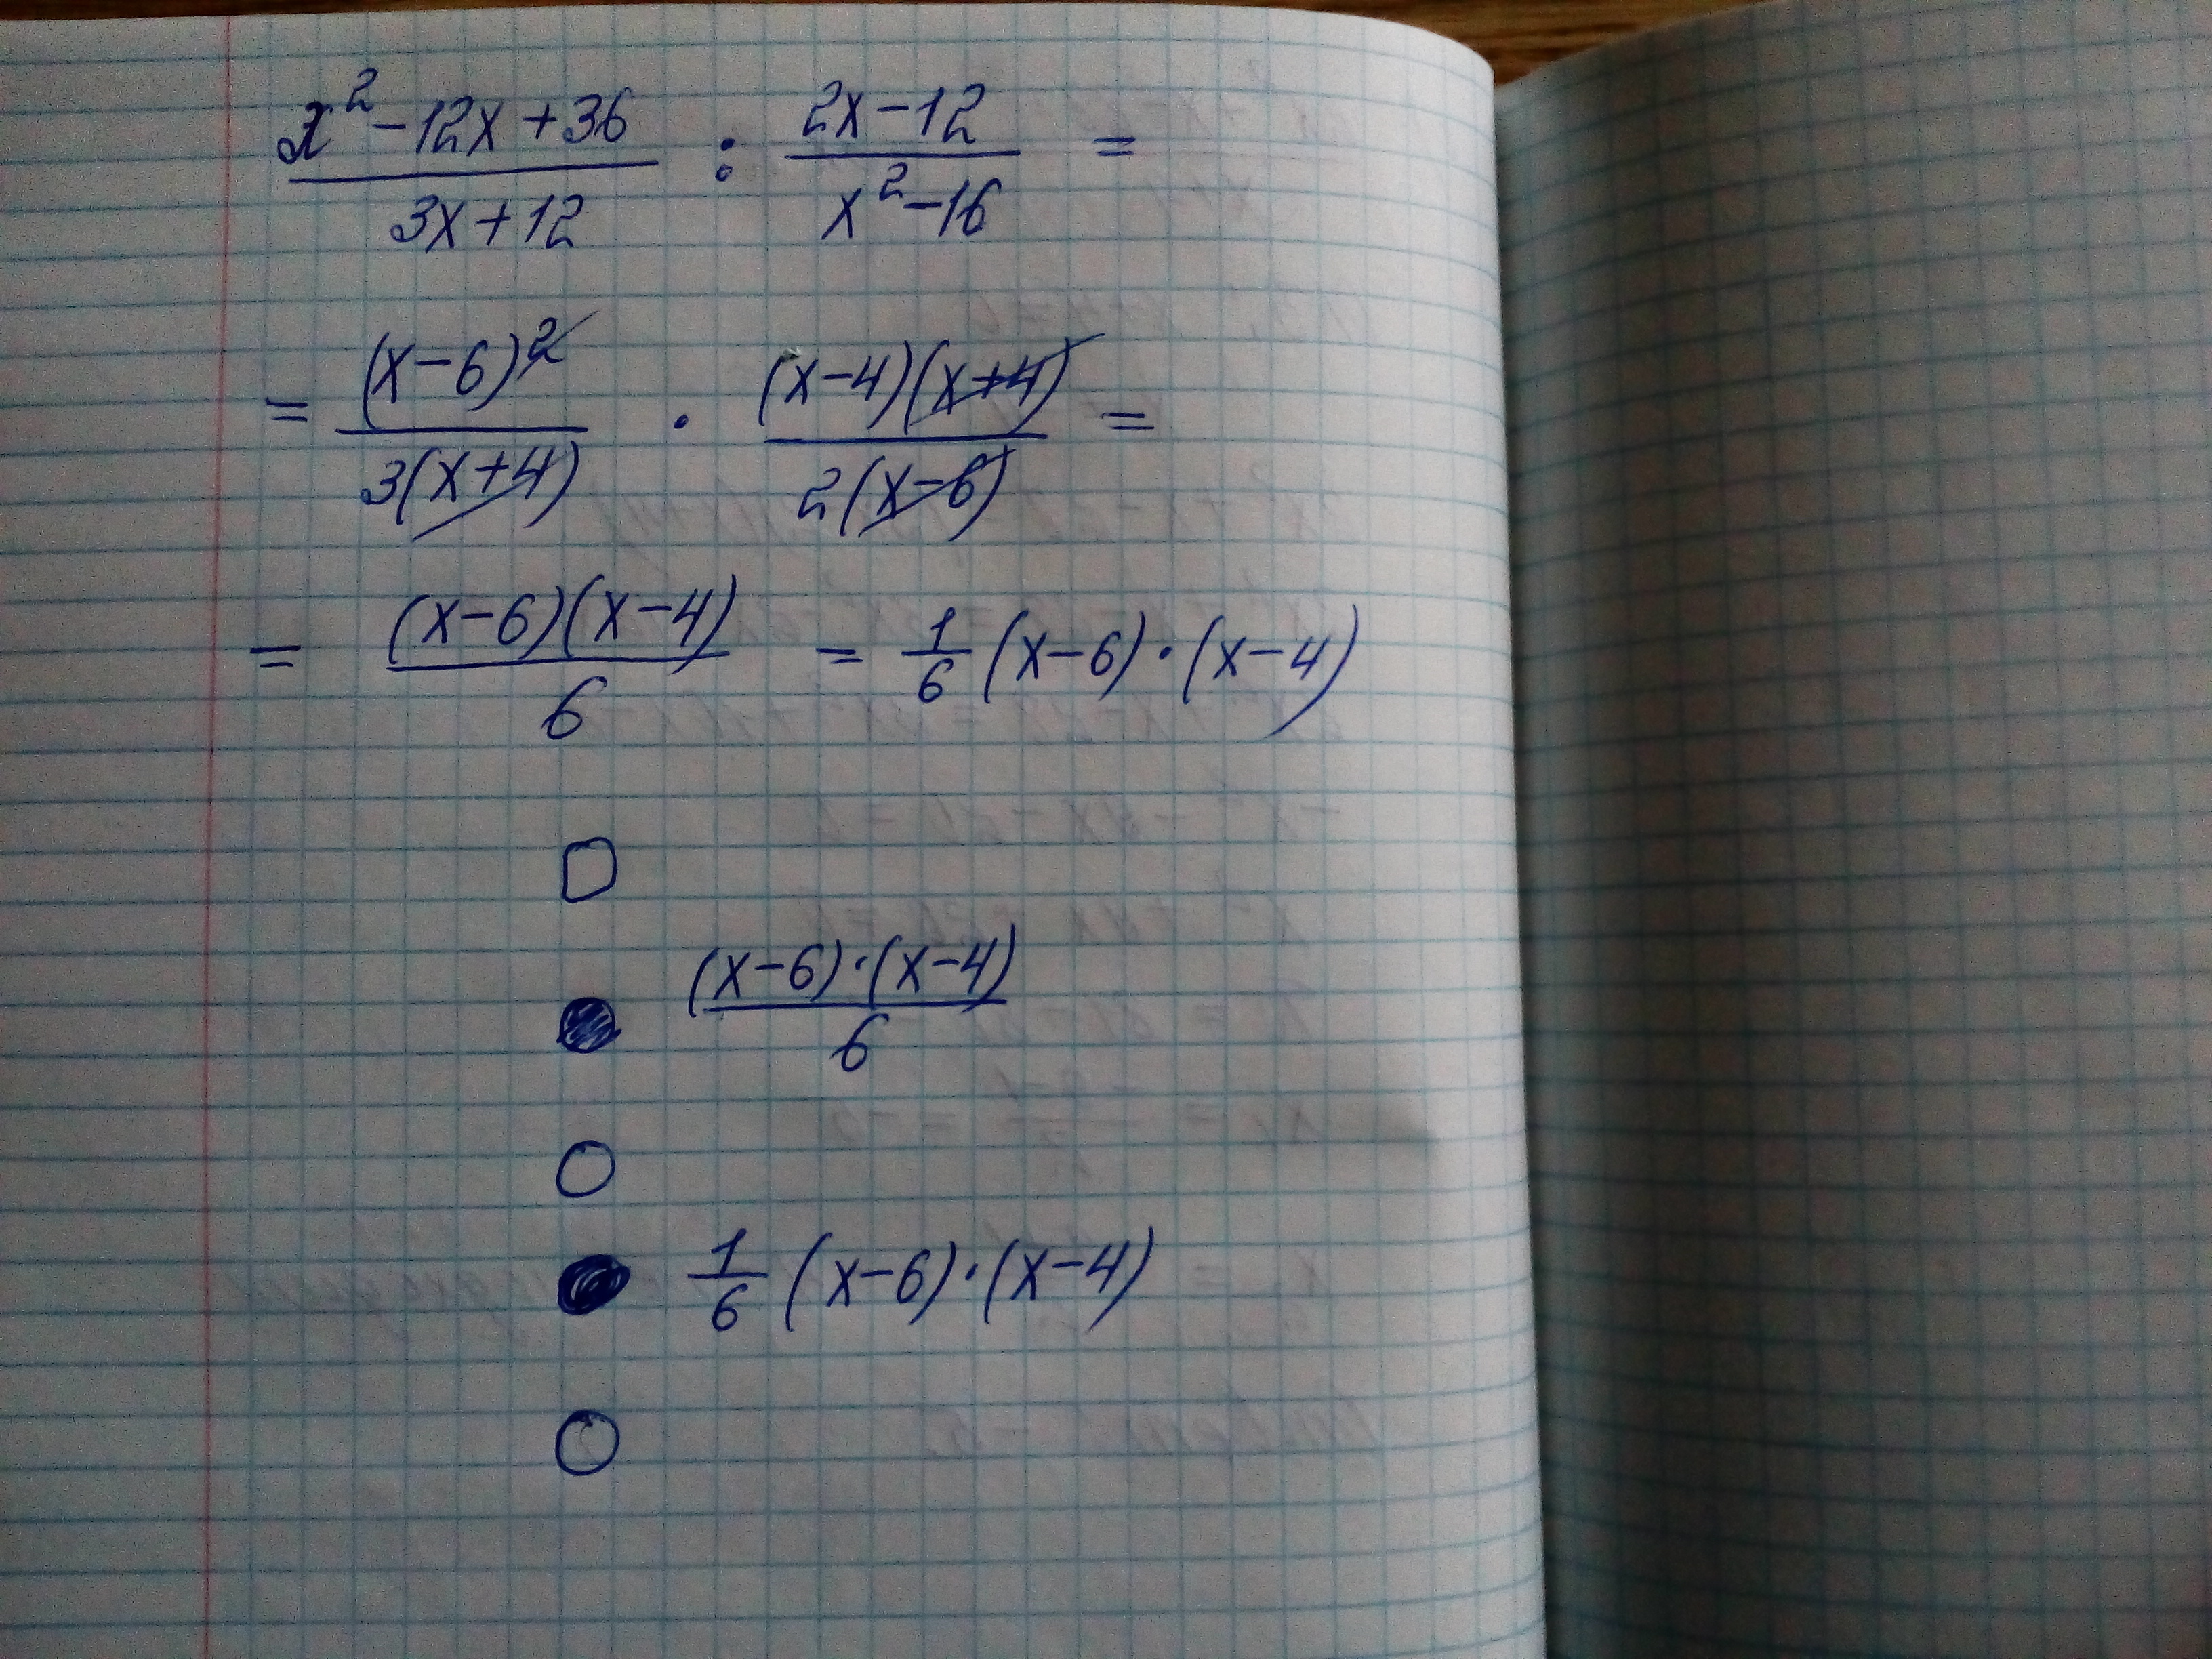 x² - 12x + 36 / 3x + 12 : 2x - 12 / x² - 16 =
= (x - 6)² / 3(x + 4) · (x - 4)(x + 4) / 2(x - 6) =
= (x - 6)(x - 4) / 6 = 1/6 (x - 6) · (x - 4)
(x - 6) · (x - 4) / 6
1/6 (x - 6) · (x - 4)